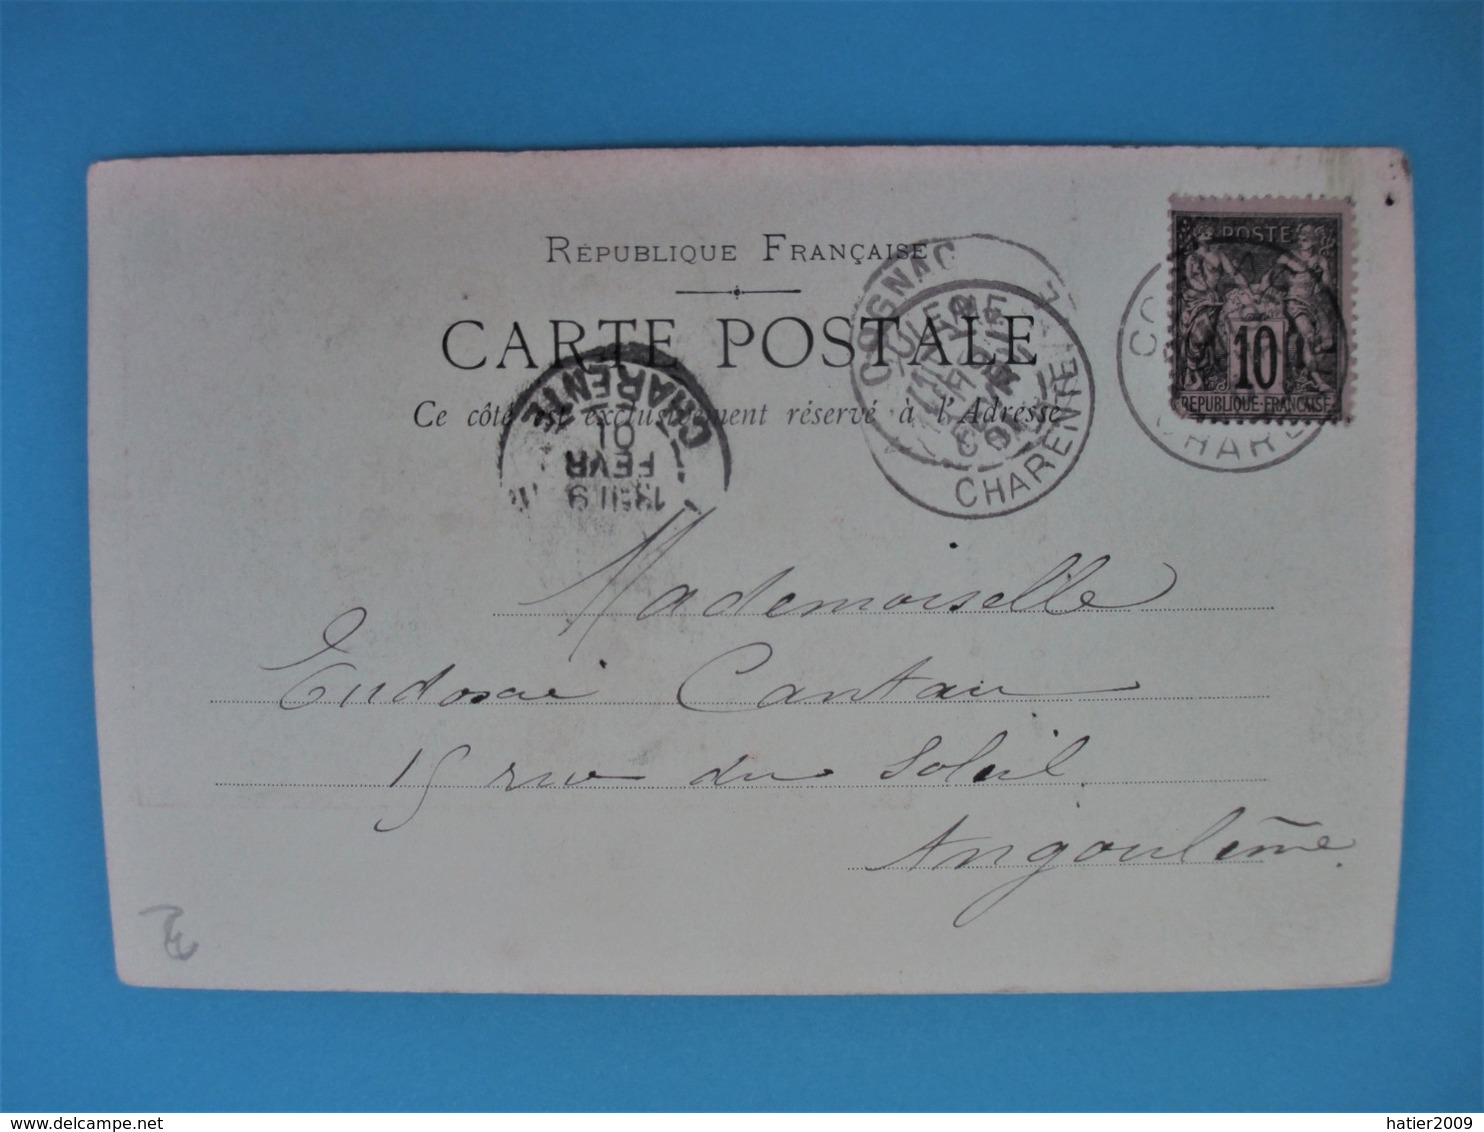 RÉPUBLIQUE FRANÇAISE
CARTE POSTALE
Ce côté est exclusivement réservé à l'Adresse
POSTE
10
REPUBLIQUE FRANÇAISE
COGNAC
CHARENTE
CHARENTE
9
FEVR
01
Mademoiselle
Cantau
15 rue du Soleil
Angoulême
delcampe.net
hatier2009